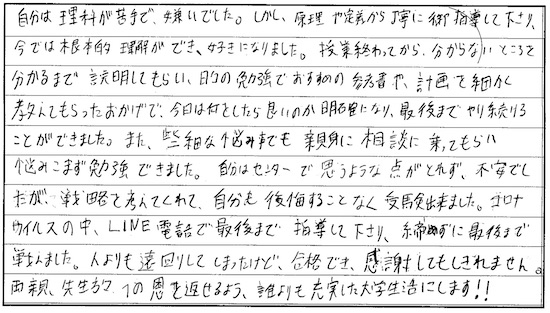 自分は理科が苦手で、嫌いでした。しかし、原理や定義から丁寧に御指導して下さり、
今では根本的理解ができ、好きになりました。授業終わってから、分からないところを
分かるまで説明してもらい、日々の勉強でおすすめの参考書や、計画を細かく
教えてもらったおかげで、今日は何をしたら良いのか明確になり、最後までやり続ける
ことができました。また、些細な悩み事でも親身に相談に乗ってもらい
悩みこまず勉強できました。自分はセンターで思うような点がとれず、不安でし
たが、戦略を考えてくれて、自分も後悔することなく受験出来ました。コロナ
ウイルスの中、LINE電話で最後まで指導して下さり、諦めずに最後まで
戦えました。人よりも遠回りしてしまったけど、合格でき、感謝してもしきれません。
両親、先生方への恩を返せるよう、誰よりも充実した大学生活にします!!